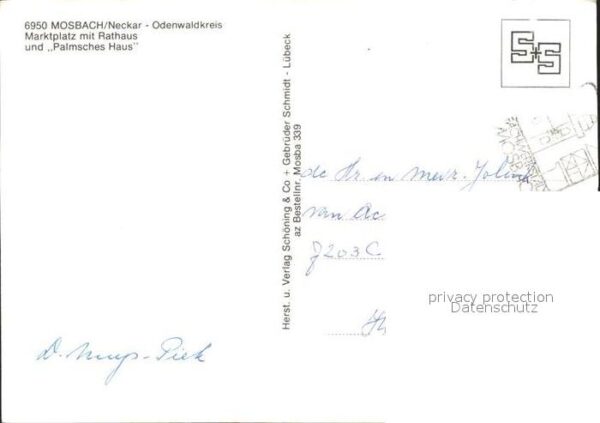 6950 MOSBACH/Neckar - Odenwaldkreis
Marktplatz mit Rathaus
und „Palmsches Haus"
Herst. u. Verlag Schöning & Co + Gebrüder Schmidt - Lübeck
az Bestellnr. Mosba 339
S+S
MOSBACH
de Hr en mevr. Jolink
van Ac
7203C
privacy protection
Datenschutz
D. -Piek